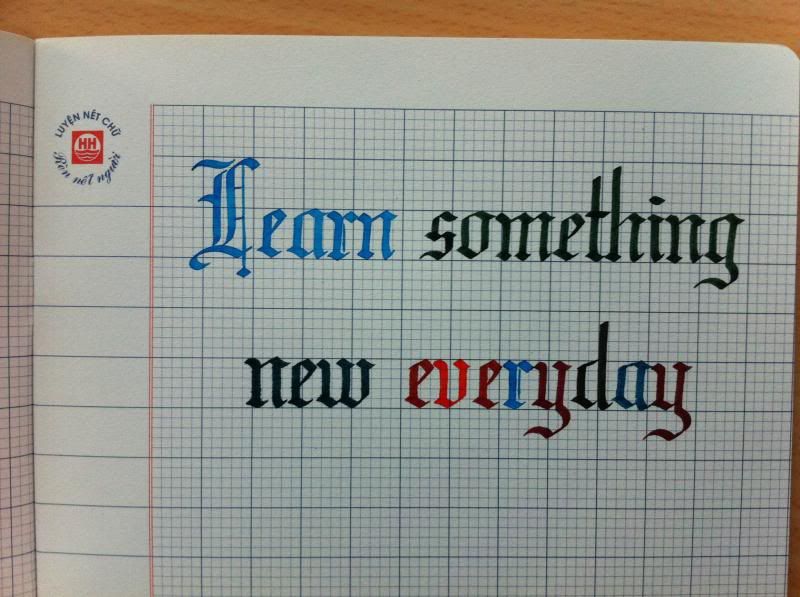 LUYỆN NÉT CHỮ
HH
Rèn nết người
Learn something
new everyday